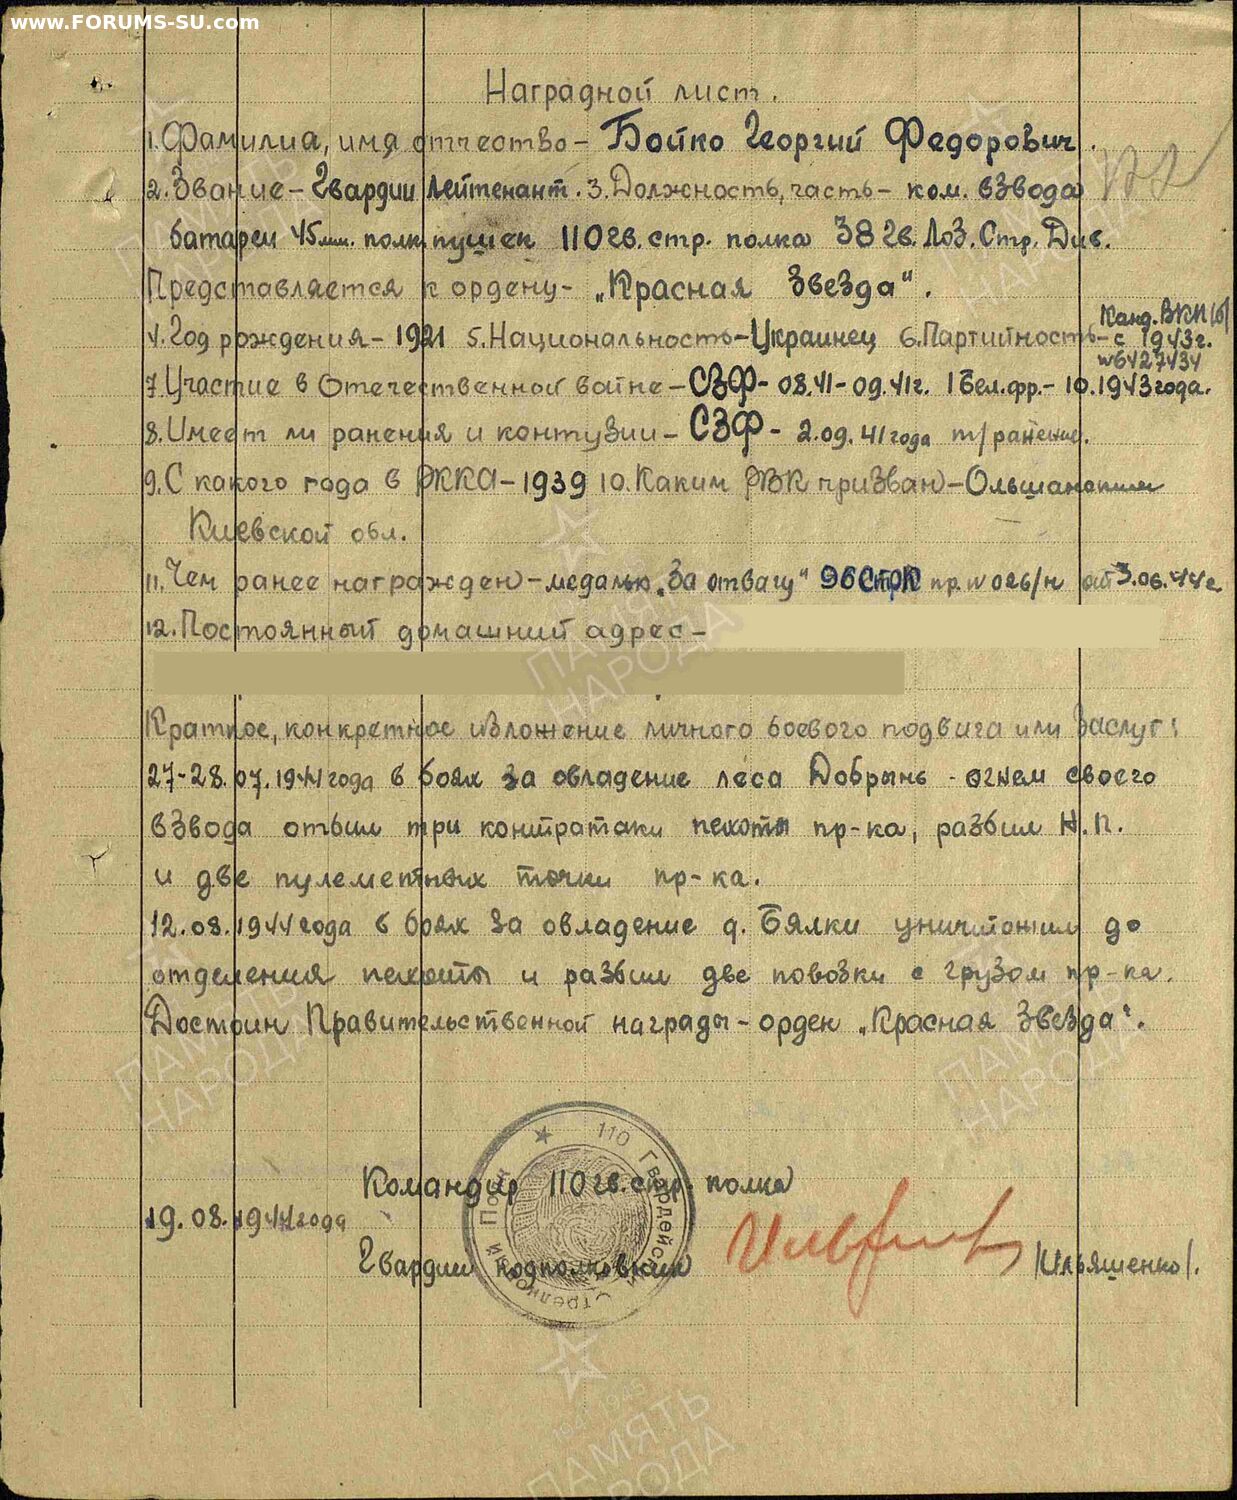 www.FORUMS-SU.com
Наградной лист.
1. Фамилиа, имя отчество – Бойко Георгий Федорович.
2. Звание – Гвардии лейтенант. 3. Должность, часть – ком. взвода
батареи 45мм. полк. пушек 110 гв. стр. полка 38 гв. Лоз. Стр. Див.
Представляется к ордену – „Красная Звезда".
Канд. ВКП(б)
4. Год рождения – 1921 5. Национальность – Украинец 6. Партийность – с 1943г.
№6427434
7. Участие в Отечественной войне – СЗФ – 08.41 – 09.41г. 1 Бел. фр. – 10.1943 года.
8. Имеет ли ранения и контузии – СЗФ – 2.09.41 года т/ранение.
9. С какого года в РККА – 1939 10. Каким РВК призван – Ольшанским
Киевской обл.
11. Чем ранее награжден – медалью „За отвагу" 96 пр. № 026/н от 3.06.44г.
12. Постоянный домашний адрес –
Краткое, конкретное изложение личного боевого подвига или заслуг:
27-28.07.1944 года в боях за овладение леса Добрынь – огнем своего
взвода отбил три контратаки пехоты пр-ка, разбил Н.П.
и две пулеметных точки пр-ка.
12.08.1944 года в боях за овладение д. Бялки уничтожил до
отделения пехоты и разбил две повозки с грузом пр-ка.
Достоин Правительственной награды – орден „Красная Звезда".
Командир 110 гв. стр. полка
19.08.1944 года
Гвардии подполковник /Ильяшенко/.
110 Гвардейский Стрелковый Полк
ПАМЯТЬ НАРОДА
1941-1945